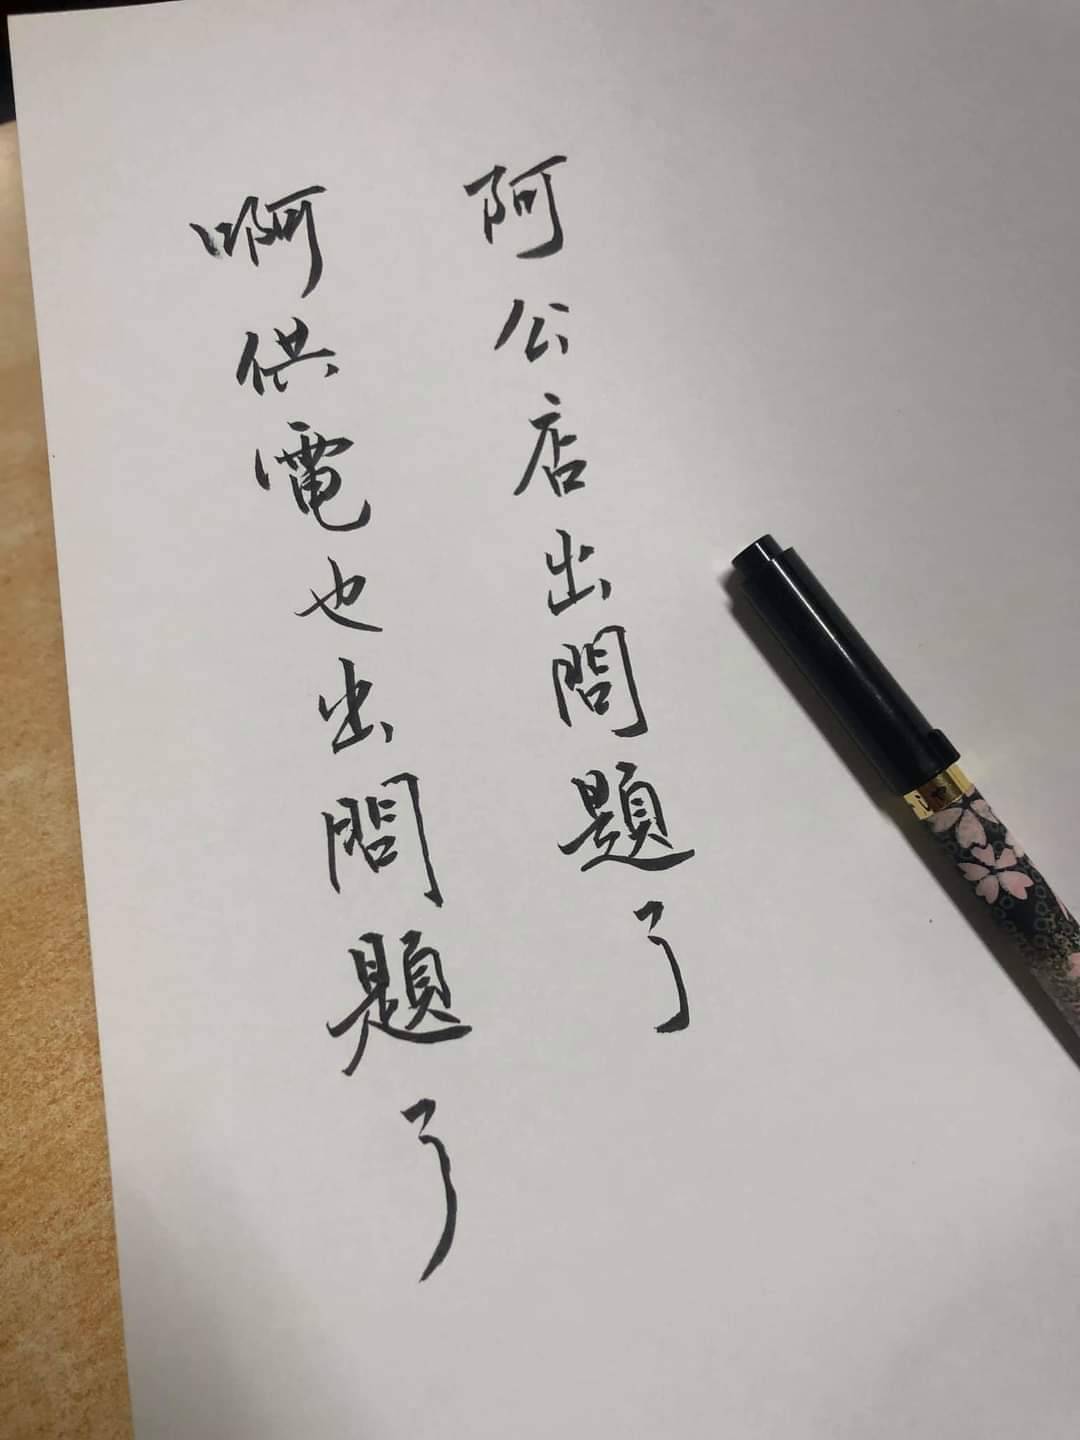 阿公店出問題了
啊供電也出問題了